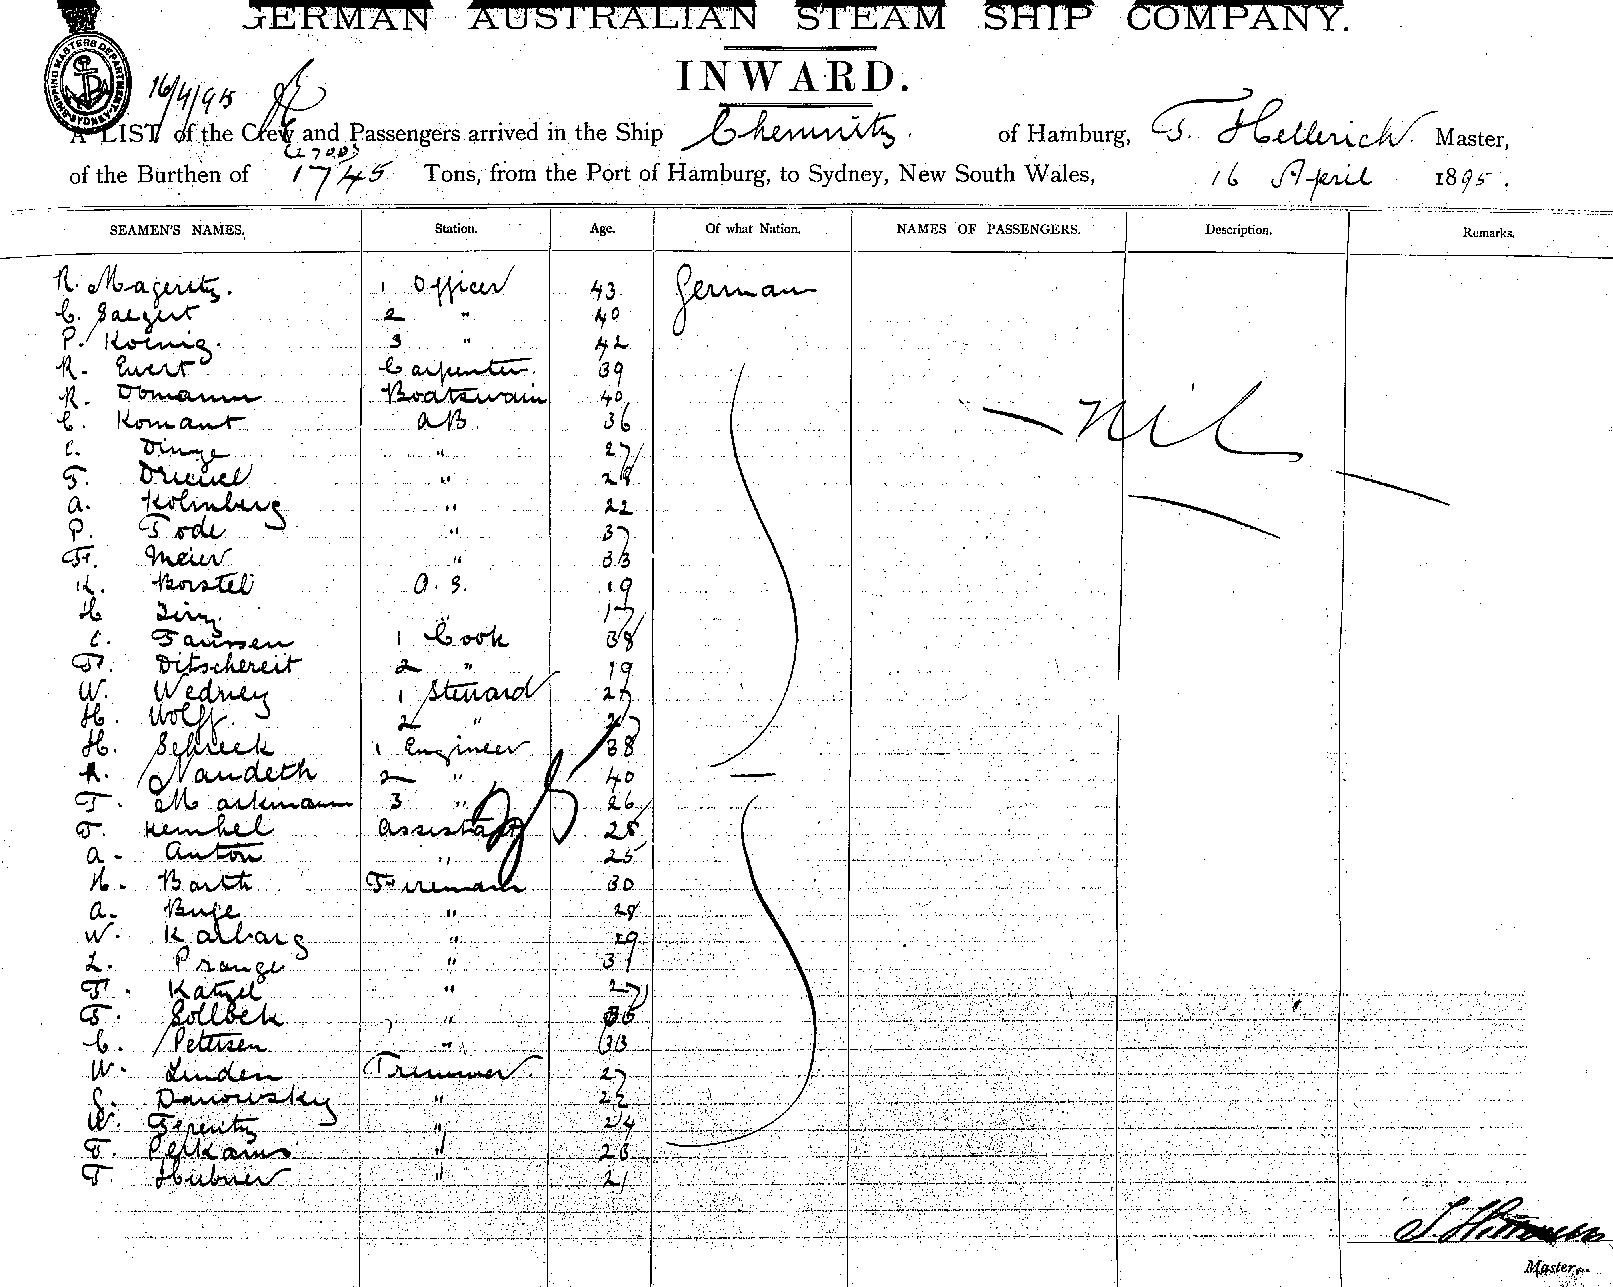 GERMAN AUSTRALIAN STEAM SHIP COMPANY.
INWARD.
16/4/95
A LIST of the Crew and Passengers arrived in the Ship Chemnitz. of Hamburg, T. Hellerich Master,
(2700)
of the Burthen of 1745 Tons, from the Port of Hamburg, to Sydney, New South Wales, 16 April 1895.
SEAMEN'S NAMES. Station. Age. Of what Nation. NAMES OF PASSENGERS. Description. Remarks.
R. Mageritz. 1 Officer 43 German
C. Saegert 2 " 40
P. Koenig. 3 " 42
R. Evert Carpenter. 39
R. Domann Boatswain 40
C. Komant AB 36 nil
C. Dinge " 27
F. Dreuel " 28
A. Kolmberg " 22
P. Tode " 37
Fr. Meier " 33
K. Borstel O.S. 19
H " 17
C. Taussen 1 Cook 38
Fr. Ditschereit 2 " 19
W. Wedney 1 Steward 27
H. Wolff. 2 " 27
H. Schreck 1 Engineer 38
R. Naudeth 2 " 40
T. Markmann 3 " 26
F. Kemhel Assistant 28
A. Anton " 25
H. Barth Fireman 30
A. Buge " 28
W. Kalbarg " 29
L. Prange " 31
Fr. Katzel " 27
F. Sollbek " 36
C. Petersen " 33
W. Linden Trimmer. 27
Danowsky " 22
W. Gerentz " 24
F. Pelkams " 23
F. Hubner " 21
Master.